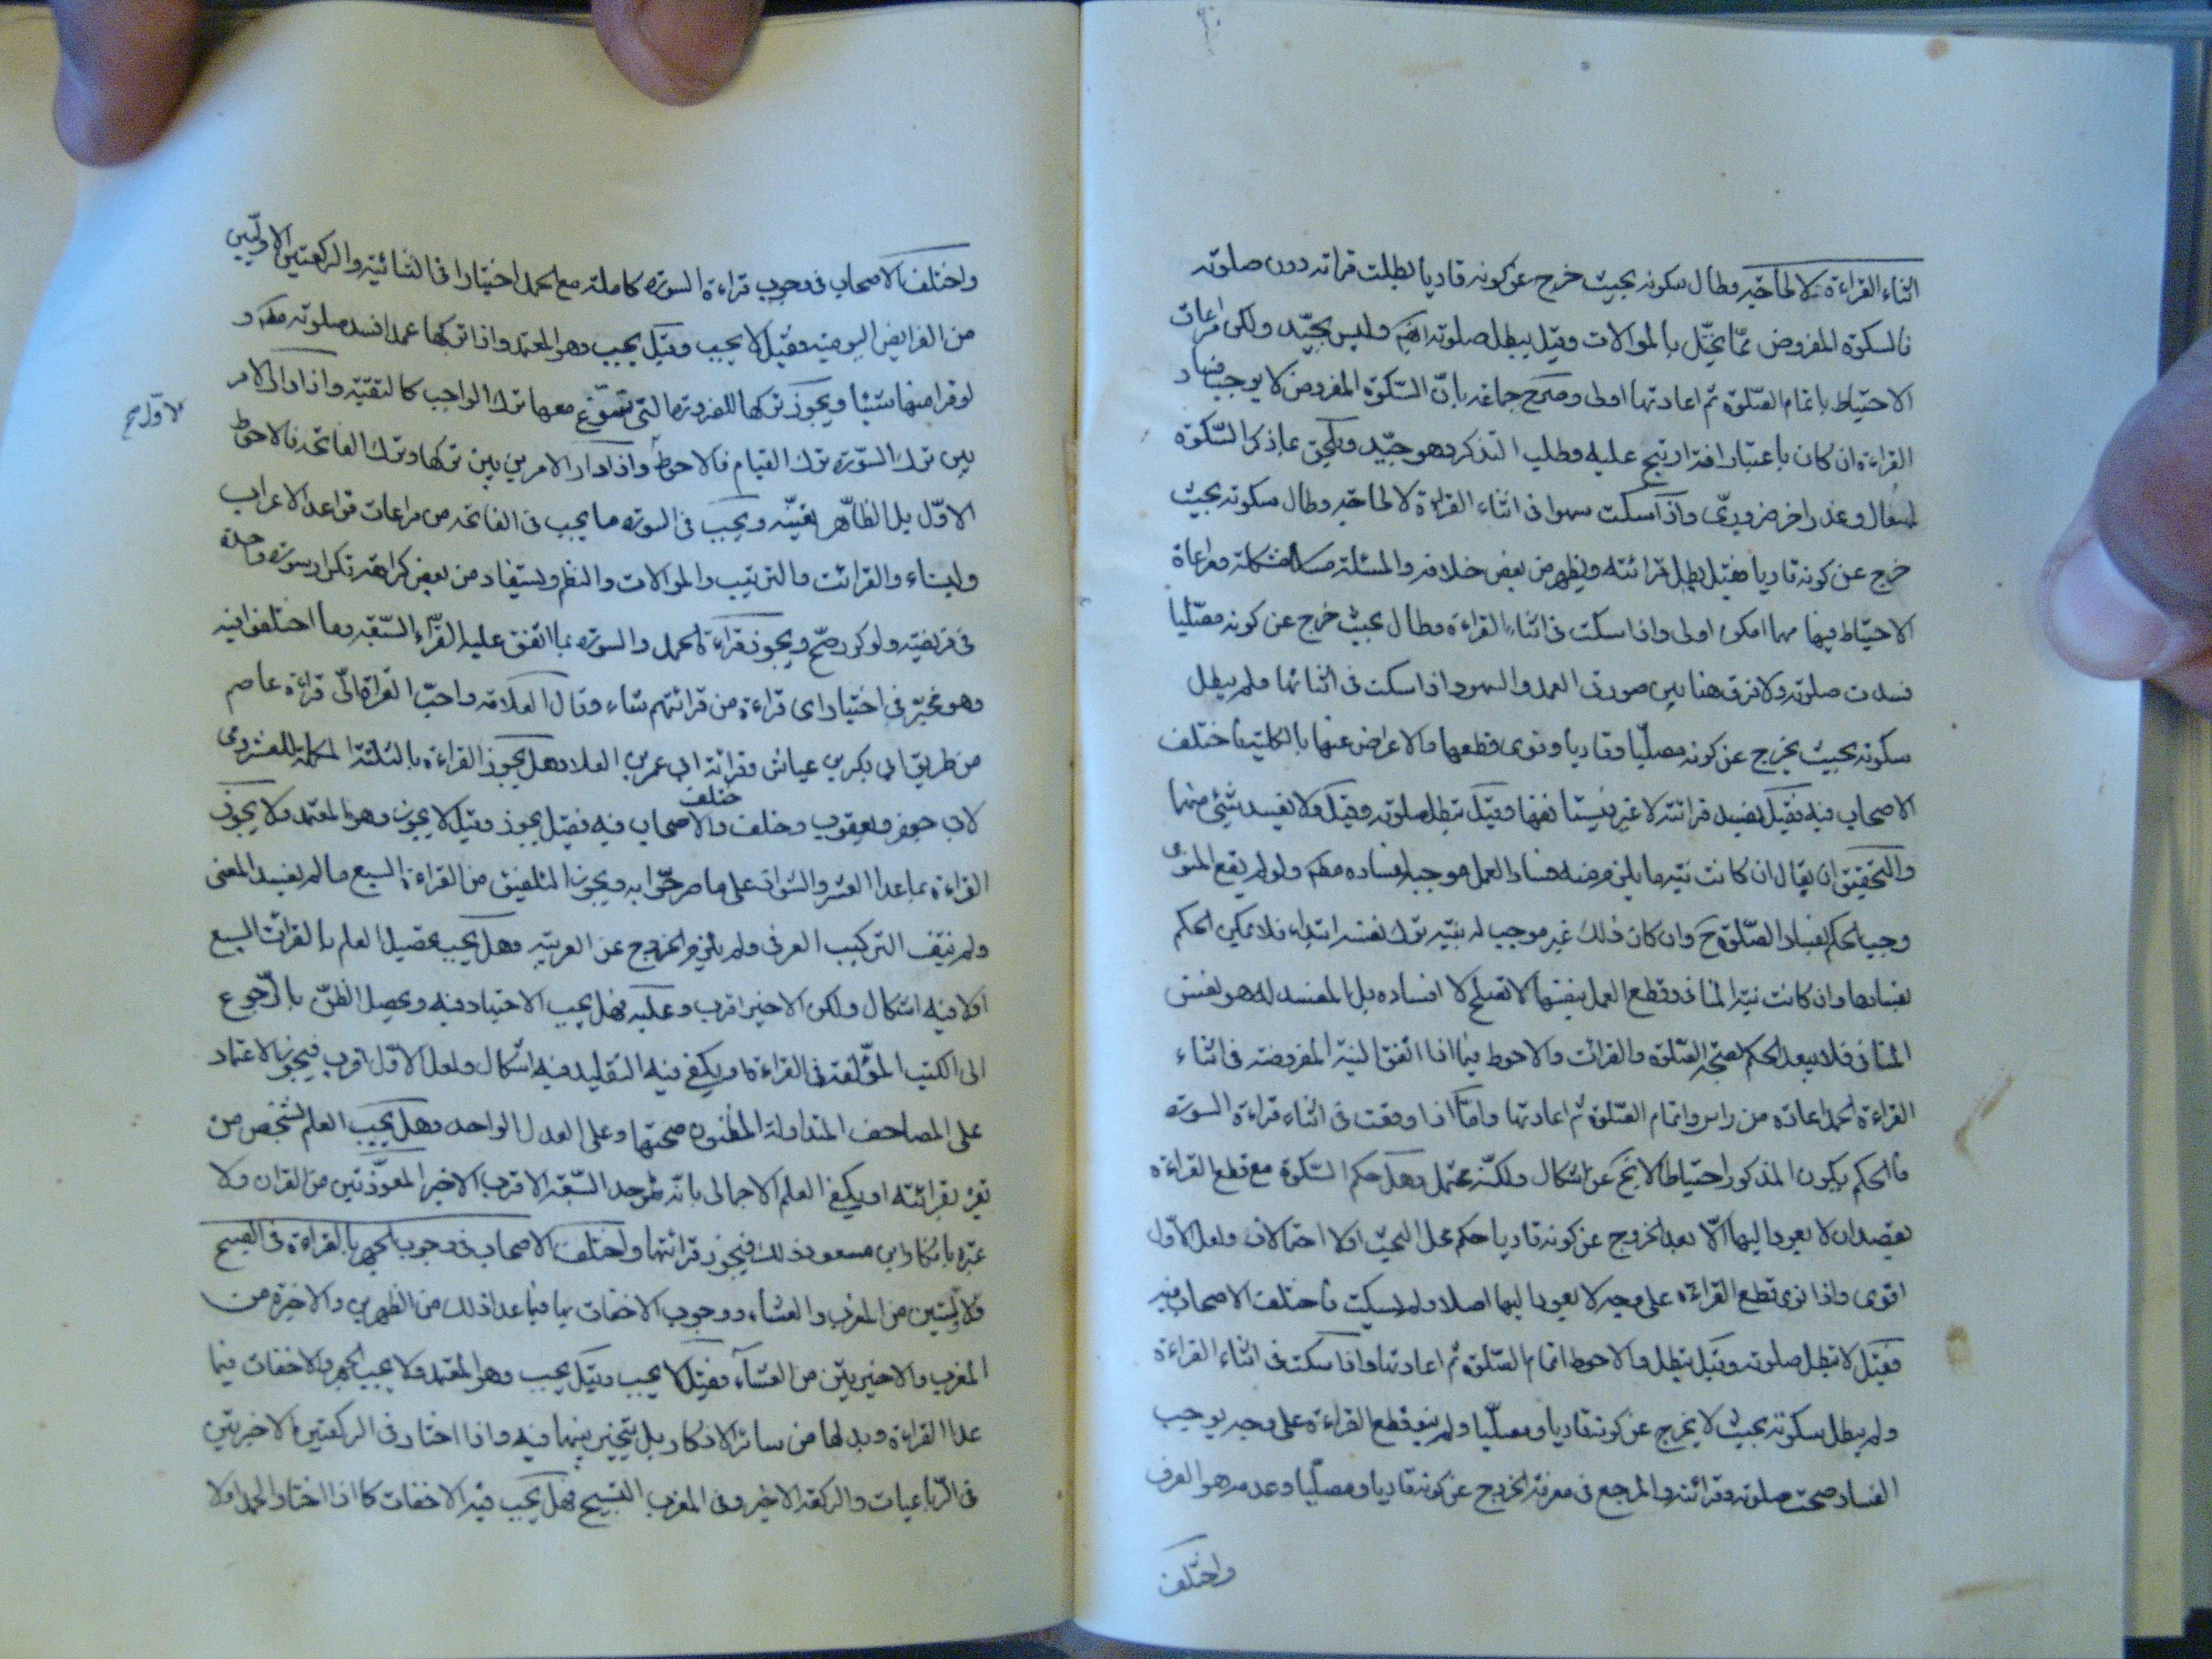 اثناء القراءة لا لحاجة وطال سكوته بحيث خرج عن كونه قاريا بطلت قرائته دون صلوته
فالسكوة المفروض مما يخل بالموالات وقيل يبطل صلوته ايضا وليس بجيد ولكن مراعات
الاحتياط باتمام الصلوة ثم اعادتها اولى وصرح جماعة بان السكوة المفروض لا يوجب فساد
القراءة ان كان باعتبار انه ارتج عليه وطلب التذكر وهو جيد ويلحق بما ذكر السكوة
لسعال وعذر اخر ضروري واذا سكت سهوا في اثناء القراءة لا لحاجة وطال سكوته بحيث
خرج عن كونه قاريا فقيل يبطل قرائته ويظهر من بعض خلافه والمسئلة مشكلة ومراعاة
الاحتياط فيها مهما امكن اولى واذا سكت في اثناء القراءة وطال بحيث خرج عن كونه مصليا
فسدت صلوته ولا فرق هنا بين صورتي العمد والسهو واذا سكت في اثنائها ولم يطل
سكوته بحيث يخرج عن كونه مصليا وقاريا ونوى قطعها والاعراض عنها بالكلية فاختلف
الاصحاب فيه فقيل يفسد قرائته لا غير فيستانفها وقيل تبطل صلوته وقيل ولا يفسد شيء منهما
والتحقيق ان يقال ان كانت نيته ما يلزم منه فساد العمل موجبا لفساده مطم ولو لم يقع المنوي
وجب الحكم بفساد الصلوة ح وان كان ذلك غير موجب له بنية ترك نفسه ابتداء فلا يمكن الحكم
بفسادها وان كانت نية المنافي وقطع العمل بنفسها لا تصلح لا فساده بل المفسد له هو نفس
المنافي فلا يبعد الحكم بصحة الصلوة والقرائت والاحوط فيما اذا اتفق النية المفروضة في اثناء
القراءة الحمد اعادة من راس واتمام الصلوة ثم اعادتها واما اذا وقعت في اثناء قراءة السورة
فالحكم بكون المذكور احتياطا لا يخ عن اشكال ولكنه محتمل وهل حكم السكوة مع قطع القراءة
بقصد ان لا يعود اليها الا بعد الخروج عن كونه قاريا حكم محل البحث اولا احتمالان ولعل الاول
اقوى واذا نوى قطع القراءة على وجه لا يعود اليها اصلا ولم يسكت فاختلف الاصحاب فيه
فقيل لا تبطل صلوته وقيل تبطل والاحوط اتمام الصلوة ثم اعادتها واذا سكت في اثناء القراءة
ولم يطل سكوته بحيث لا يخرج عن كونه قاريا ومصليا ولم ينو قطع القراءة على وجه يوجب
الفساد صحت صلوته وقرائته والمرجع في معرفة الخروج عن كونه قاريا ومصليا وعدمه هو العرف
واختلف
واختلف الاصحاب في وجوب قراءة السورة كاملة مع الحمد اختيارا في الثنائية والركعتين الاوليين
من الفرايض اليومية فقيل لا يجب وقيل يجب وهو المعتمد واذا تركها عمدا فسد صلوته مطم و
لو قرا منها شيئا ويجوز تركها للضرورة التي تسوغ معها ترك الواجب كالتقية واذا دار الامر
بين ترك السورة وترك القيام فالاحوط واذا دار الامر بين تركها وترك الفاتحة فالاحوط
الاول صح
الاول بل الظاهر تعينه ويجب في السورة ما يجب في الفاتحة من مراعات قواعد الاعراب
والبناء والقرائت والترتيب والموالات والنظم ويستفاد من بعض كراهة تكرار سورة واحدة
في فريضة ولو كرر صح ويجوز قراءة الحمد والسورة بما اتفق عليه القراء السبعة وما اختلفوا فيه
وهو مخير في اختيار اي قراءة من قرائتهم شاء وقال العلامة واحب القراءة الي قراءة عاصم
من طريق ابي بكر بن عياش وقرائة ابي عمر بن العلا وهل يجوز القراءة بالثلثة المكملة للعشر وهي
لابي جعفر ويعقوب وخلف والاصحاب فيه فقيل يجوز وقيل لا يجوز وهو المعتمد ولا يجوز
القراءة بما عدا العشر والشواذ على ما صرحوا به ويجوز التلفيق من القراءة السبع ما لم يفسد المعنى
ولم ينف التركيب العرفي ولم يلزم الخروج عن العربية وهل يجب تحصيل العلم بالقرائت السبع
اولا فيه اشكال ولكن الاخير اقرب وعليه فهل يجب الاجتهاد فيه وتحصيل الظن بالرجوع
الى الكتب المؤلفة في القراءة او يكفي فيه التقليد فيه اشكال ولعل الاول اقرب فيجوز الاعتماد
على المصاحف المتداولة المظنون صحتها وعلى العدل الواحد وهل يجب العلم بشخص من
يقرء بقرائته او يكفي العلم الاجمالي بانه احد السبعة الاقرب الاخير المعوذتين من القران ولا
عبرة بانكار ابن مسعود ذلك فيجوز قرائتها واختلف الاصحاب في وجوب الجهر بالقراءة في الصبح
والاوليين من المغرب والعشاء ووجوب الاخفات بها فيما عدا ذلك من الظهرين والاخيرة من
المغرب والاخيرتين من العشاء فقيل لا يجب وقيل يجب وهو المعتمد ولا يجب الجهر والاخفات فيما
عدا القراءة وبدلها من سائر الاذكار بل يتخير بينهما فيه واذا اختار في الركعتين الاخيرتين
في الرباعيات والركعة الاخيرة في المغرب التسبيح فهل يجب فيه الاخفات كما اذا اختار الحمد اولا